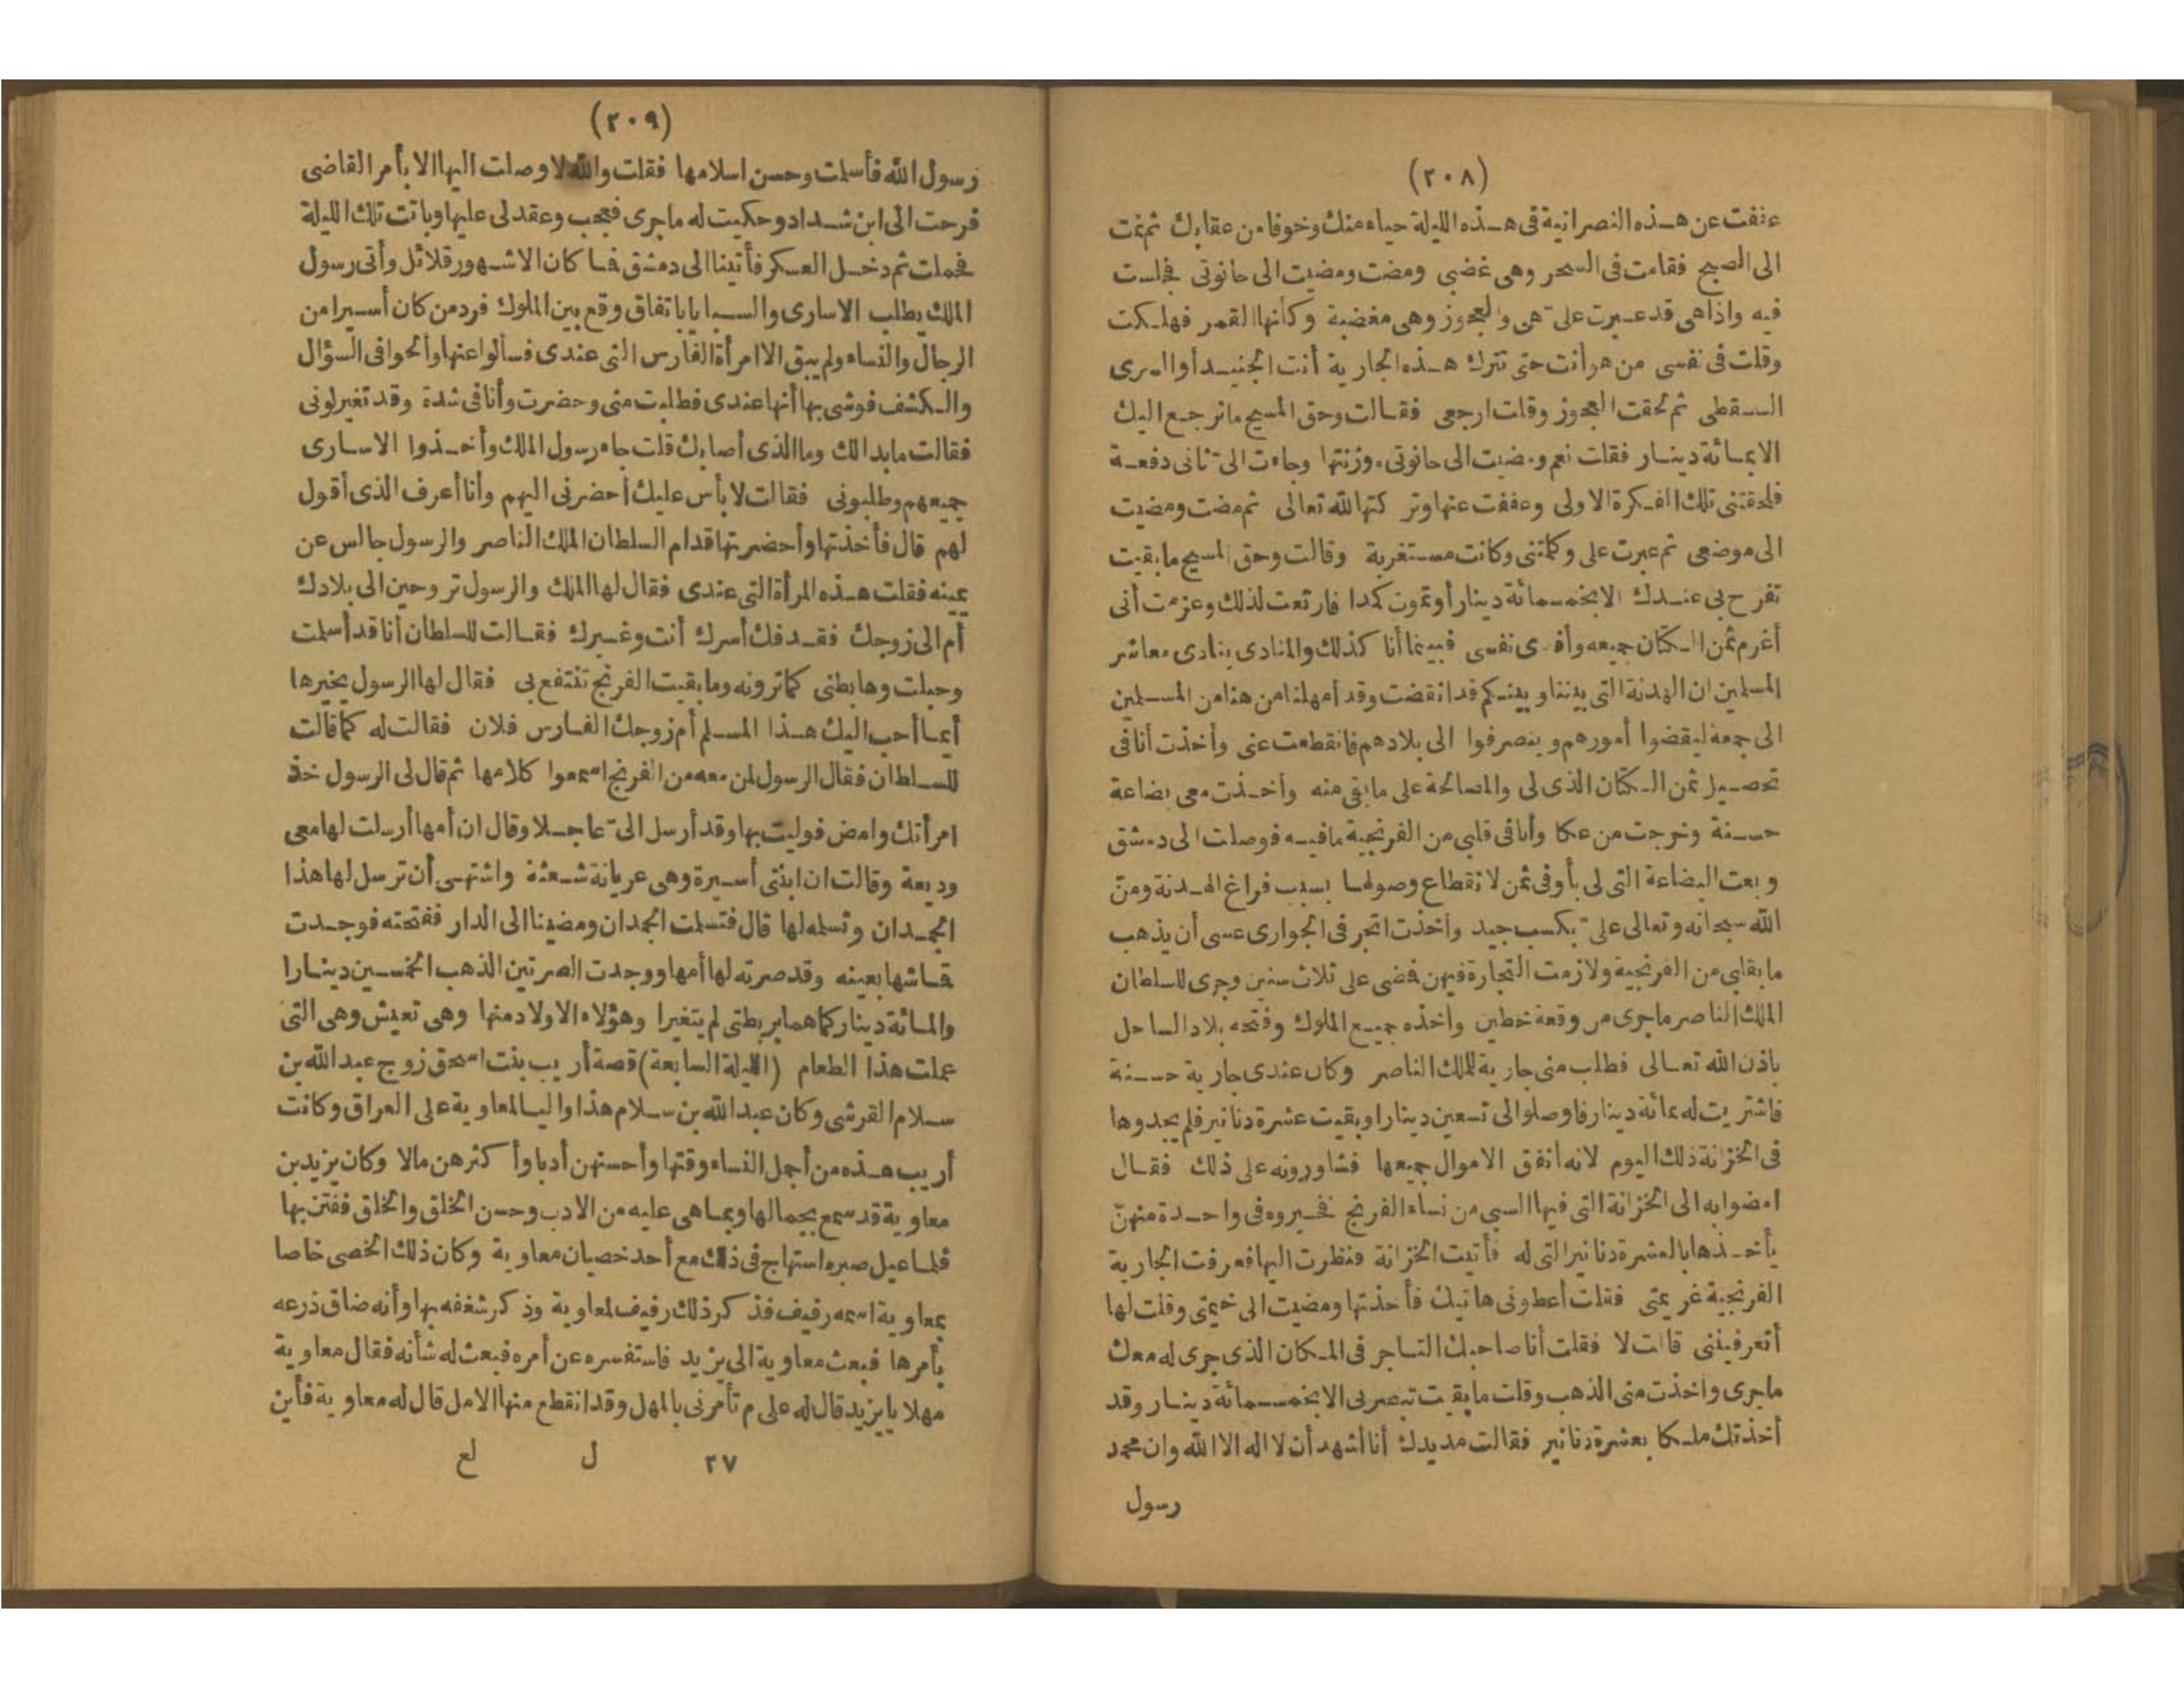 (٢٠٨)
عففت عن هذه النصرانية فى هذه الليلة حياء منك وخوفا من عقابك ثم نمت
الى الصبح فقامت فى السحر وهى غضبى ومضت ومضيت الى حانوتى فجلست
فيه واذا هى قد عبرت علىّ هى والعجوز وهى مغضبة وكأنها القمر فهلكت
وقلت فى نفسى من هو أنت حتى تترك هذه الجارية أنت الجنيد أو السرى
السقطى ثم لحقت العجوز وقلت ارجعى فقالت وحق المسيح ما ترجع اليك
الا بمائة دينار فقلت نعم ومضيت الى حانوتى ووزنتها وجاءت الىّ ثانى دفعة
فلحقتنى تلك الفكرة الاولى وعففت عنها وتركتها لله تعالى ثم مضت ومضيت
الى موضعى ثم عبرت على وكلمتنى وكانت مستغربة وقالت وحق المسيح ما بقيت
تفرح بى عندك الا بخمسمائة دينار أو تموت كمدا فارتعت لذلك وعزمت أنى
أغرم ثمن الكتان جميعه وأفدى نفسى فبينما أنا كذلك والمنادى ينادى معاشر
المسلمين ان الهدنة التى بيننا وبينكم قد انقضت وقد أمهلنا من هنا من المسلمين
الى جمعة ليقضوا أمورهم وينصرفوا الى بلادهم فانقطعت عنى وأخذت أنا فى
تحصيل ثمن الكتان الذى لى والمصالحة على ما بقى منه وأخذت معى بضاعة
حسنة وخرجت من عكا وأنا فى قلبى من الفرنجية ما فيه فوصلت الى دمشق
وبعت البضاعة التى لى بأوفى ثمن لانقطاع وصولها بسبب فراغ الهدنة ومنّ
الله سبحانه وتعالى علىّ بكسب جيد وأخذت اتجر فى الجوارى عسى أن يذهب
ما بقلبى من الفرنجية ولازمت التجارة فيهن فمضى على ثلاث سنين وجرى للسلطان
الملك الناصر ما جرى من وقعة حطين وأخذه جميع الملوك وفتحه بلاد الساحل
باذن الله تعالى فطلب منى جارية للملك الناصر وكان عندى جارية حسنة
فاشتريت له بمائة دينار فاوصلوا الى تسعين دينارا وبقيت عشرة دنانير فلم يجدوها
فى الخزانة ذلك اليوم لانه أنفق الاموال جميعها فشاوروه على ذلك فقال
امضوا به الى الخزانة التى فيها السبى من نساء الفرنج فخيروه فى واحدة منهنّ
يأخذها بالعشرة دنانير التى له فأتيت الخزانة فنظرت اليها فعرفت الجارية
الفرنجية غريمتى فقلت أعطونى هاتيك فأخذتها ومضيت الى خيمتى وقلت لها
أتعرفيننى قالت لا فقلت أنا صاحبك التاجر فى المكان الذى جرى له معك
ما جرى وأخذت منى الذهب وقلت ما بقيت تبصرنى الا بخمسمائة دينار وقد
أخذتك ملكا بعشرة دنانير فقالت مد يدك أنا أشهد أن لا اله الا الله وان محمد
رسول
(٢٠٩)
رسول الله فأسلمت وحسن اسلامها فقلت والله لا وصلت اليها الا بأمر القاضى
فرحت الى ابن شداد وحكيت له ماجرى فعجب وعقد لى عليها وباتت تلك الليلة
فحملت ثم دخل العسكر فأتينا الى دمشق فما كان الاشهور قلائل وأتى رسول
الملك يطلب الاسارى والسبايا باتفاق وقع بين الملوك فرد من كان أسيرا من
الرجال والنساء ولم يبق الا امرأة الفارس التى عندى فسألوا عنها وألحوا فى السؤال
والكشف فوشى بها أنها عندى فطلبت منى وحضرت وأنا فى شدة وقد تغير لونى
فقالت ما بدالك وما الذى أصابك قلت جاء رسول الملك وأخذوا الاسارى
جميعهم وطلبونى فقالت لا بأس عليك أحضرنى اليهم وأنا أعرف الذى أقول
لهم قال فأخذتها وأحضرتها قدام السلطان الملك الناصر والرسول جالس عن
يمينه فقلت هذه المرأة التى عندى فقال لها الملك والرسول تروحين الى بلادك
أم الى زوجك فقد فك أسرك أنت وغيرك فقالت للسلطان أنا قد أسلمت
وحبلت وها بطنى كما ترونه وما بقيت الفرنج تنتفع بى فقال لها الرسول يخيرها
أيما أحب اليك هذا المسلم أم زوجك الفارس فلان فقالت له كما قالت
للسلطان فقال الرسول لمن معه من الفرنج اسمعوا كلامها ثم قال لى الرسول خذ
امرأتك وامض فوليت بها وقد أرسل الىّ عاجلا وقال ان أمها أرسلت لها معى
وديعة وقالت ان ابنتى أسيرة وهى عريانة شعثة واشتهى أن ترسل لها هذا
الجمدان وتسلمه لها قال فتسلمت الجمدان ومضينا الى الدار ففتحته فوجدت
قماشها بعينه وقد صرته لها أمها ووجدت الصرتين الذهب الخمسين دينارا
والمائة دينار كما هما بربطتى لم يتغيرا وهؤلاء الاولاد منها وهى تعيش وهى التى
عملت هذا الطعام (الليلة السابعة) قصة أريب بنت اسحق زوج عبد الله بن
سلام القرشى وكان عبد الله بن سلام هذا واليا لمعاوية على العراق وكانت
أريب هذه من أجمل النساء وقتها وأحسنهن أدبا وأكثرهن مالا وكان يزيد بن
معاوية قد سمع بجمالها وبما هى عليه من الادب وحسن الخلق والخلق ففتن بها
فلما عيل صبره استهاج فى ذلك مع أحد خصيان معاوية وكان ذلك الخصى خاصا
بمعاوية اسمه رفيف فذكر ذلك رفيف لمعاوية وذكر شغفه بها وأنه ضاق ذرعه
بأمرها فبعث معاوية الى يزيد فاستفسره عن أمره فبعث له شأنه فقال معاوية
مهلا يا يزيد قال له على م تأمرنى بالمهل وقد انقطع منها الامل قال له معاوية فأين
٢٧ ل لع